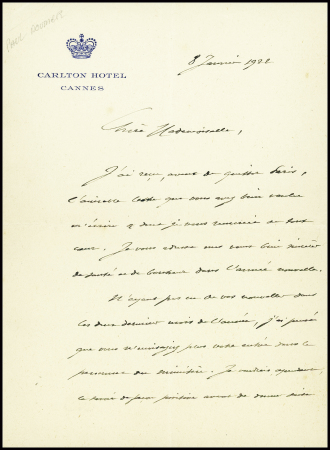 CARLTON HOTEL
CANNES
8 Janvier 1922
Chère Mademoiselle,
J'ai reçu, avant de quitter Paris,
l'aimable lettre que vous avez bien voulu
m'écrire et dont je vous remercie de tout
cœur. Je vous adresse mes vœux bien sincères
de santé et de bonheur dans l'année nouvelle.
N'ayant pas eu de vos nouvelles dans
ces deux derniers mois de l'année, j'ai pensé
que vous n'envisagiez plus votre entrée dans le
personnel du ministère. Je voulais cependant